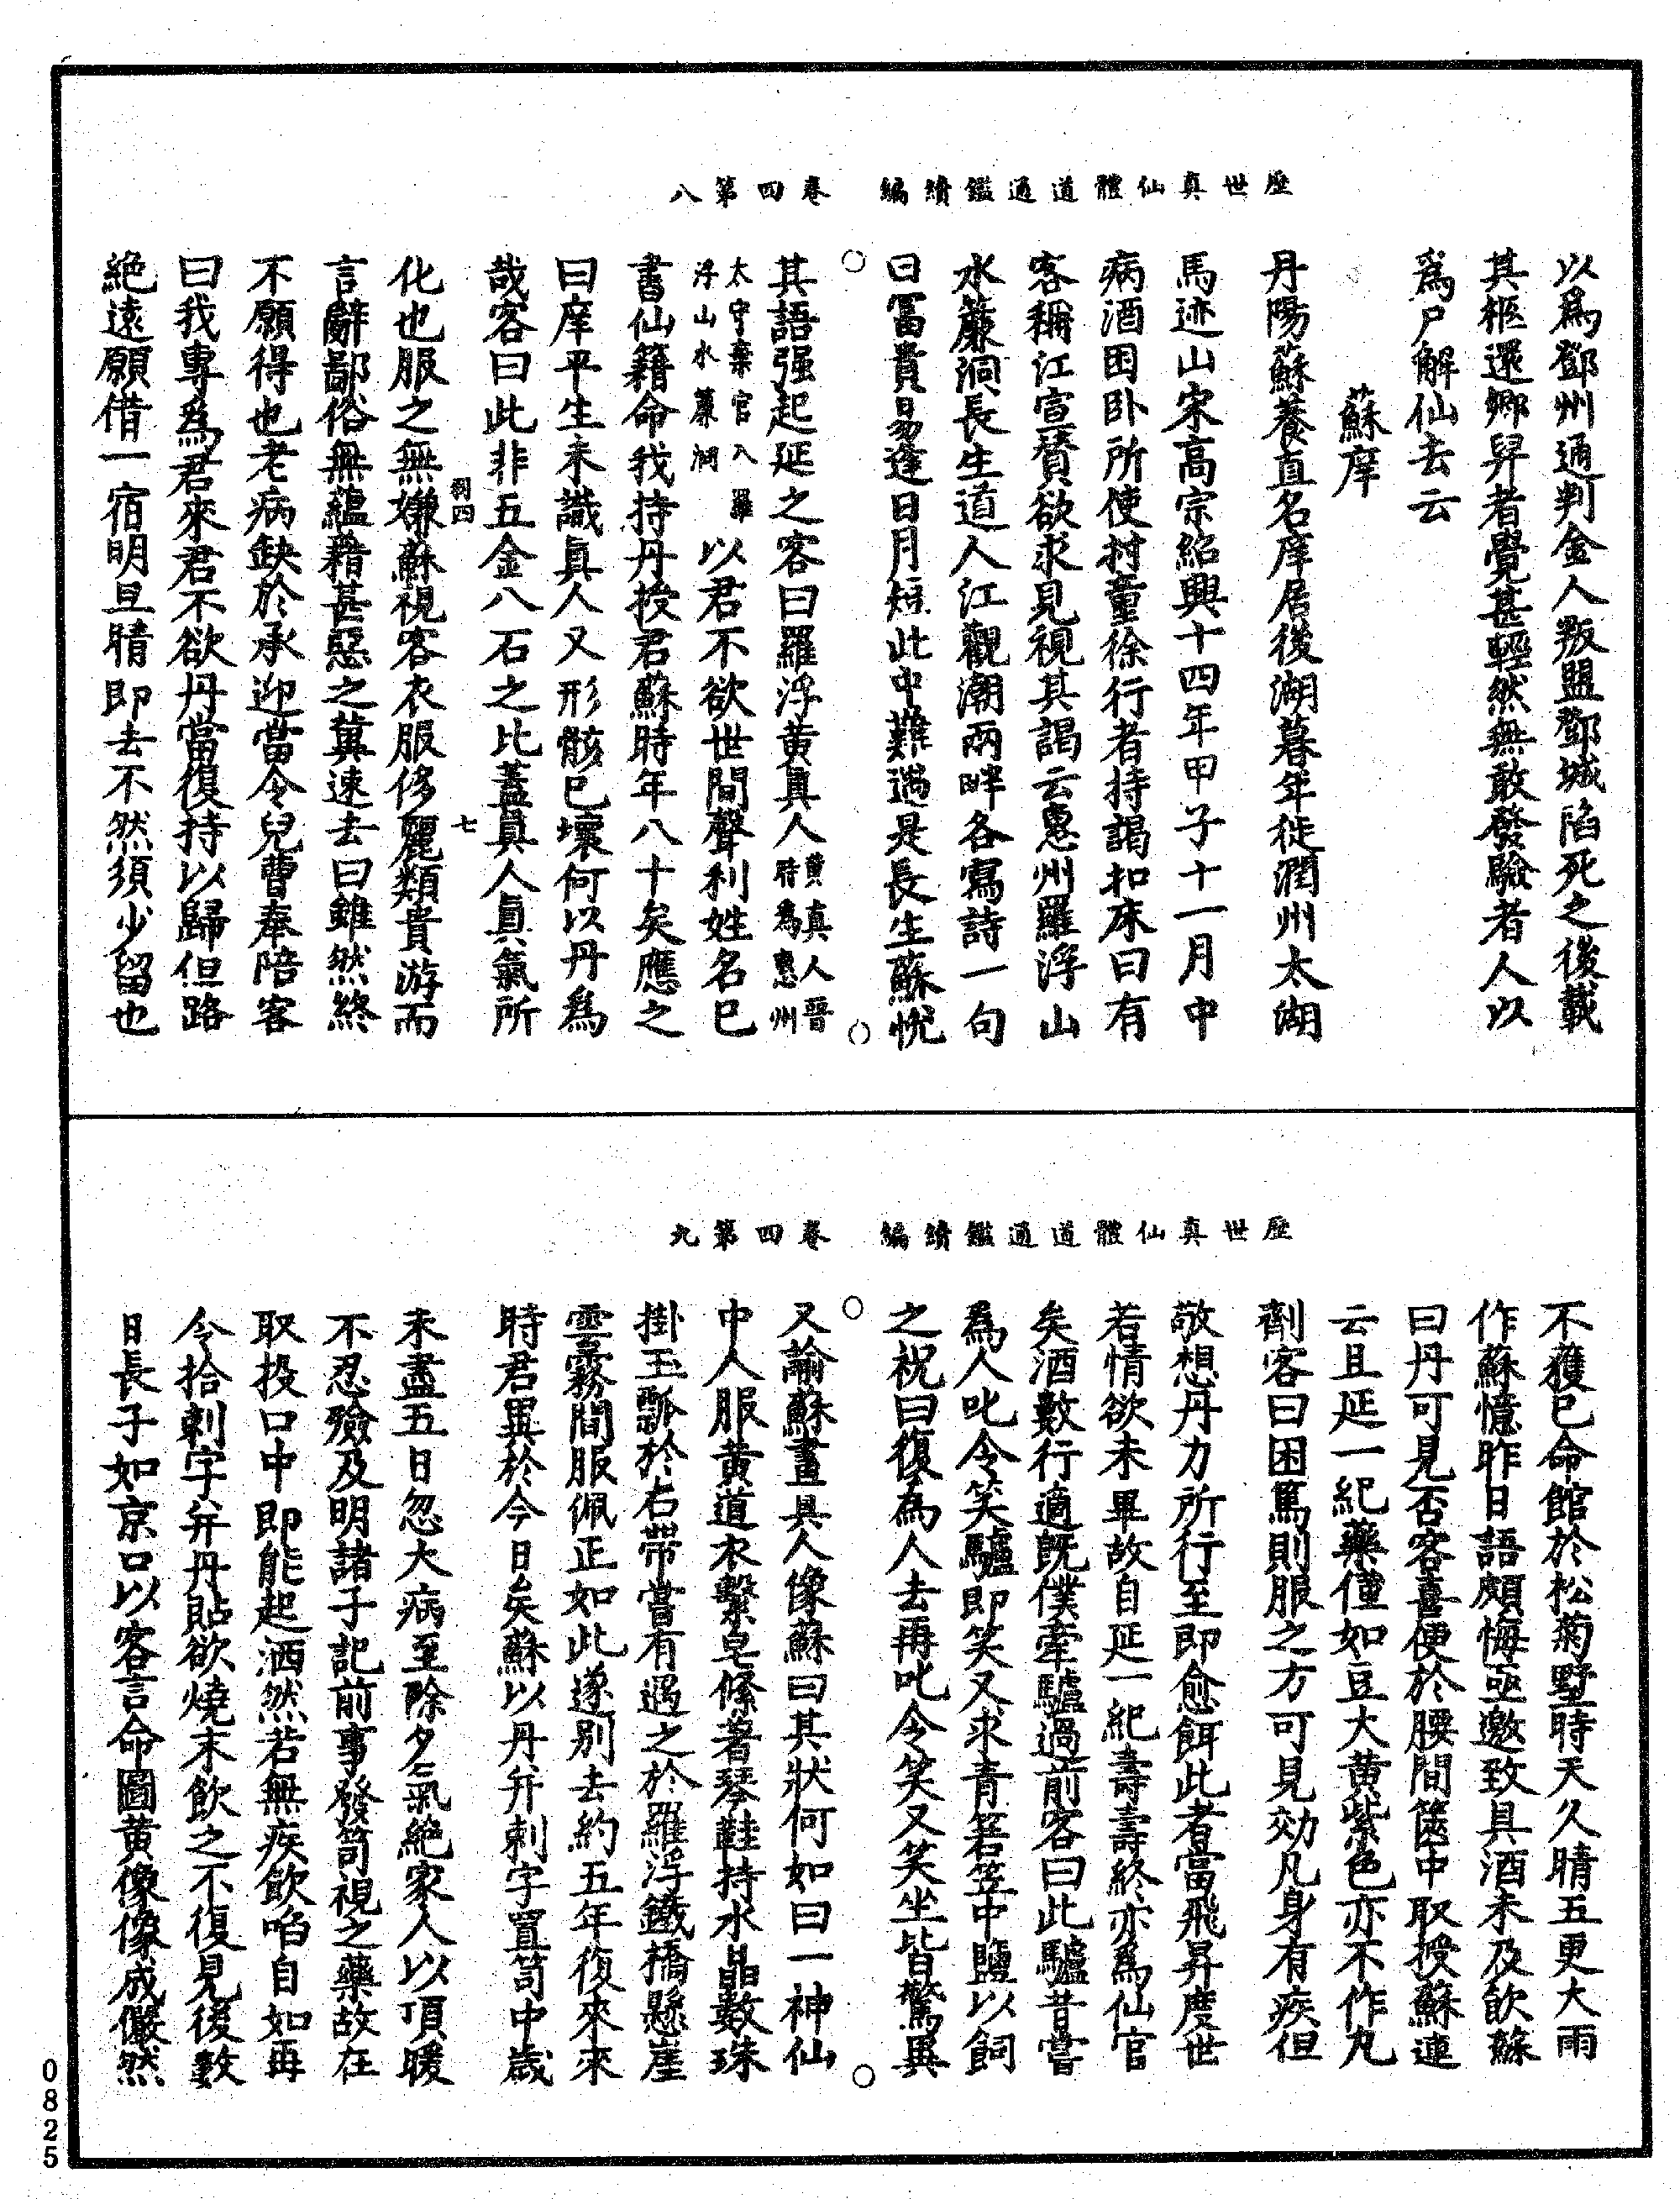 歷世真仙體道通鑑續編　卷四第八
以爲鄧州通判金人叛盟鄧城陷死之後載
其柩還鄉舁者覺甚輕然無敢發驗者人以
爲尸解仙去云
蘇庠
丹陽蘇養直名庠居後湖暮年徙潤州太湖
馬迹山宋高宗紹興十四年甲子十一月中
病酒困卧所使村童徐行者持謁扣床曰有
客稱江宣贊欲求見視其謁云惠州羅浮山
水簾洞長生道人江觀潮兩畔各寫詩一句
曰冨貴易逢日月短此中難遇是長生蘇恱
其語强起延之客曰羅浮黄真人黄真人晉時爲惠州
太守棄官入羅浮山水簾洞以君不欲世間聲利姓名已
書仙籍命我持丹授君蘇時年八十矣應之
曰庠平生未識真人又形骸已壞何以丹爲
哉客曰此非五金八石之比蓋真人真氣所
利四　七
化也服之無嫌蘇視客衣服侈麗類貴游而
言辭鄙俗無藴藉甚惡之冀速去曰雖然終
不願得也老病缺於承迎當令兒曹奉陪客
曰我專爲君來君不欲丹當復持以歸但路
絶遠願借一宿明旦晴即去不然須少留也
歷世真仙體道通鑑續編　卷四第九
不獲已命館於松菊墅時天久晴五更大雨
作蘇憶昨日語頗悔亟邀致具酒未及飲蘇
曰丹可見否客喜便於腰間篋中取授蘇連
云且延一紀藥僅如豆大黄紫色亦不作丸
劑客曰困篤則服之方可見効凡身有疾但
敬想丹力所行至即愈餌此者當飛昇度世
若情欲未畢故自延一紀壽壽終亦爲仙官
矣酒數行適既僕牽驢過前客曰此驢昔嘗
為人叱令笑驢即笑又求青箬笠中鹽以飼
之祝曰復為人去再叱令笑又笑坐皆驚異
又諭蘇畫真人像蘇曰其狀何如曰一神仙
中人服黄道衣繫皂絛著琴鞋持水晶數珠
掛玉瓢於右帶嘗有遇之於羅浮鐵橋懸崖
雲霧間服佩正如此遂别去約五年復來來
時君異於今日矣蘇以丹并刺字置笥中歲
未盡五日忽大病至除夕氣絶家人以頂暖
不忍殮及明諸子記前事發笥視之藥故在
取投口中即能起洒然若無疾飲啗自如再
令拾刺字并丹貼欲燒末飲之不復見後數
日長子如京口以客言命圖黄像像成儼然
0825